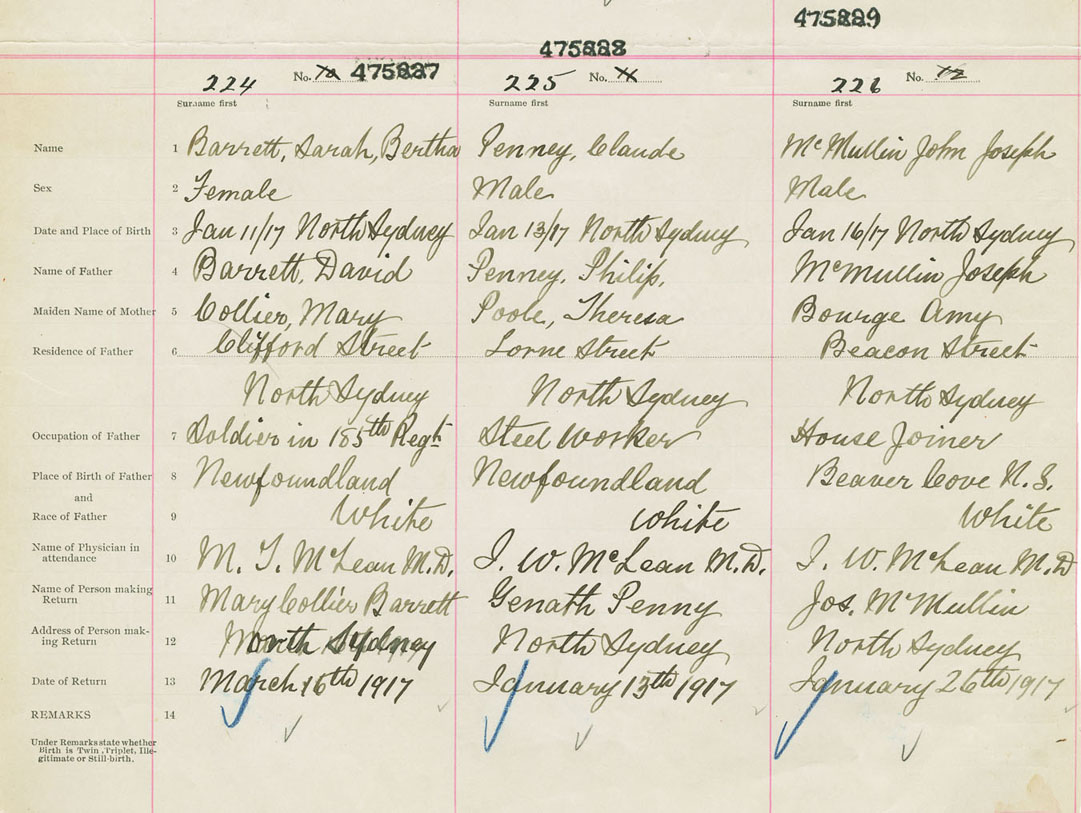 475889
475888
224 No. 10 475887 225 No. 11 226 No. 12
Surname first Surname first Surname first
Name 1 Barrett, Sarah, Bertha Penney, Claude McMullin John Joseph
Sex 2 Female Male Male
Date and Place of Birth 3 Jan 11/17 North Sydney Jan 13/17 North Sydney Jan 16/17 North Sydney
Name of Father 4 Barrett, David Penney, Philip, McMullin Joseph
Maiden Name of Mother 5 Collier, Mary Poole, Theresa Bourge Amy
Residence of Father 6 Clifford Street Lorne Street Beacon Street
North Sydney North Sydney North Sydney
Occupation of Father 7 Soldier in 185th Regt Steel Worker House Joiner
Place of Birth of Father 8 Newfoundland Newfoundland Beaver Cove N.S.
and
Race of Father 9 White White White
Name of Physician in
attendance 10 M. T. McLean M.D. J. W. McLean M.D. J. W. McLean M.D
Name of Person making
Return 11 Mary Collier Barrett Penny Jos. McMullin
Address of Person mak-
ing Return 12 North Sydney North Sydney North Sydney
Date of Return 13 March 16th 1917 January 13th 1917 January 26th 1917
REMARKS 14
Under Remarks state whether
Birth is Twin, Triplet, Ille-
gitimate or Still-birth.